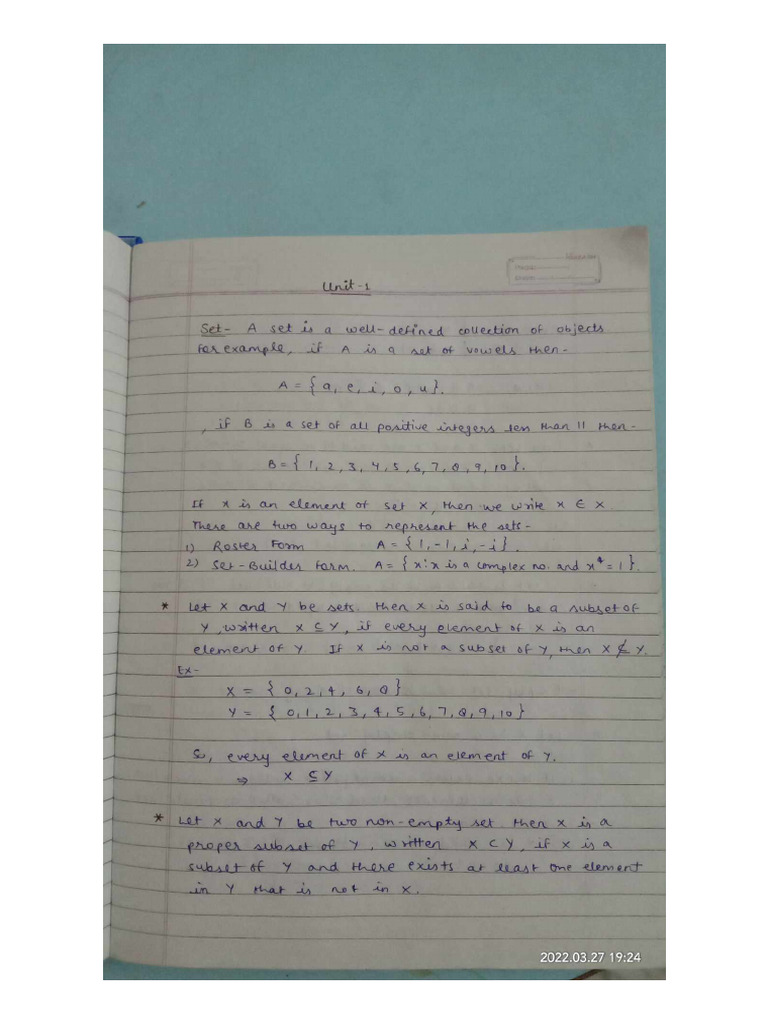 Unit-1
Set- A set is a well-defined collection of objects
For example, if A is a set of vowels then-
A = { a, e, i, o, u }.
, if B is a set of all positive integers less than 11 then-
B = { 1, 2, 3, 4, 5, 6, 7, 8, 9, 10 }.
If x is an element of set X, then we write x ∈ X.
There are two ways to represent the sets-
1) Roster Form A = { 1, -1, i, -i }.
2) Set-Builder Form. A = { x : x is a complex no. and x⁴ = 1 }.
* Let X and Y be sets. then X is said to be a subset of
Y, written X ⊆ Y, if every element of X is an
element of Y. If X is not a subset of Y, then X ⊈ Y.
Ex-
X = { 0, 2, 4, 6, 8 }
Y = { 0, 1, 2, 3, 4, 5, 6, 7, 8, 9, 10 }
So, every element of X is an element of Y.
⇒ X ⊆ Y
* Let X and Y be two non-empty set then X is a
proper subset of Y, written X ⊂ Y, if X is a
subset of Y and there exists at least one element
in Y that is not in X.
2022.03.27 19:24